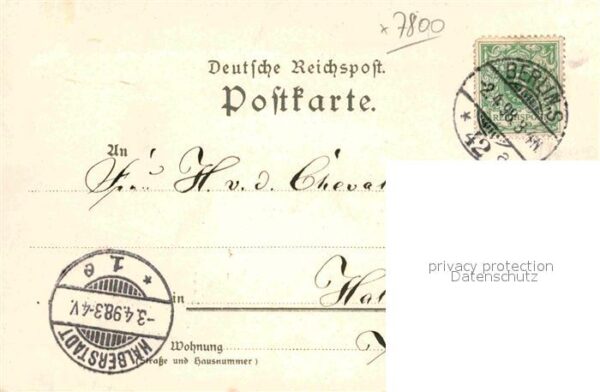 x 7800
Deutsche Reichspost.
Postkarte.
BERLIN.S.
2.4.98.3-
* 42 a
REICHSPOST
An
Frau H. v. d. Cheva
privacy protection
Datenschutz
* 1 e
-3.4.98.3-4.V.
HALBERSTADT
in Hal
Wohnung
(Straße und Hausnummer)